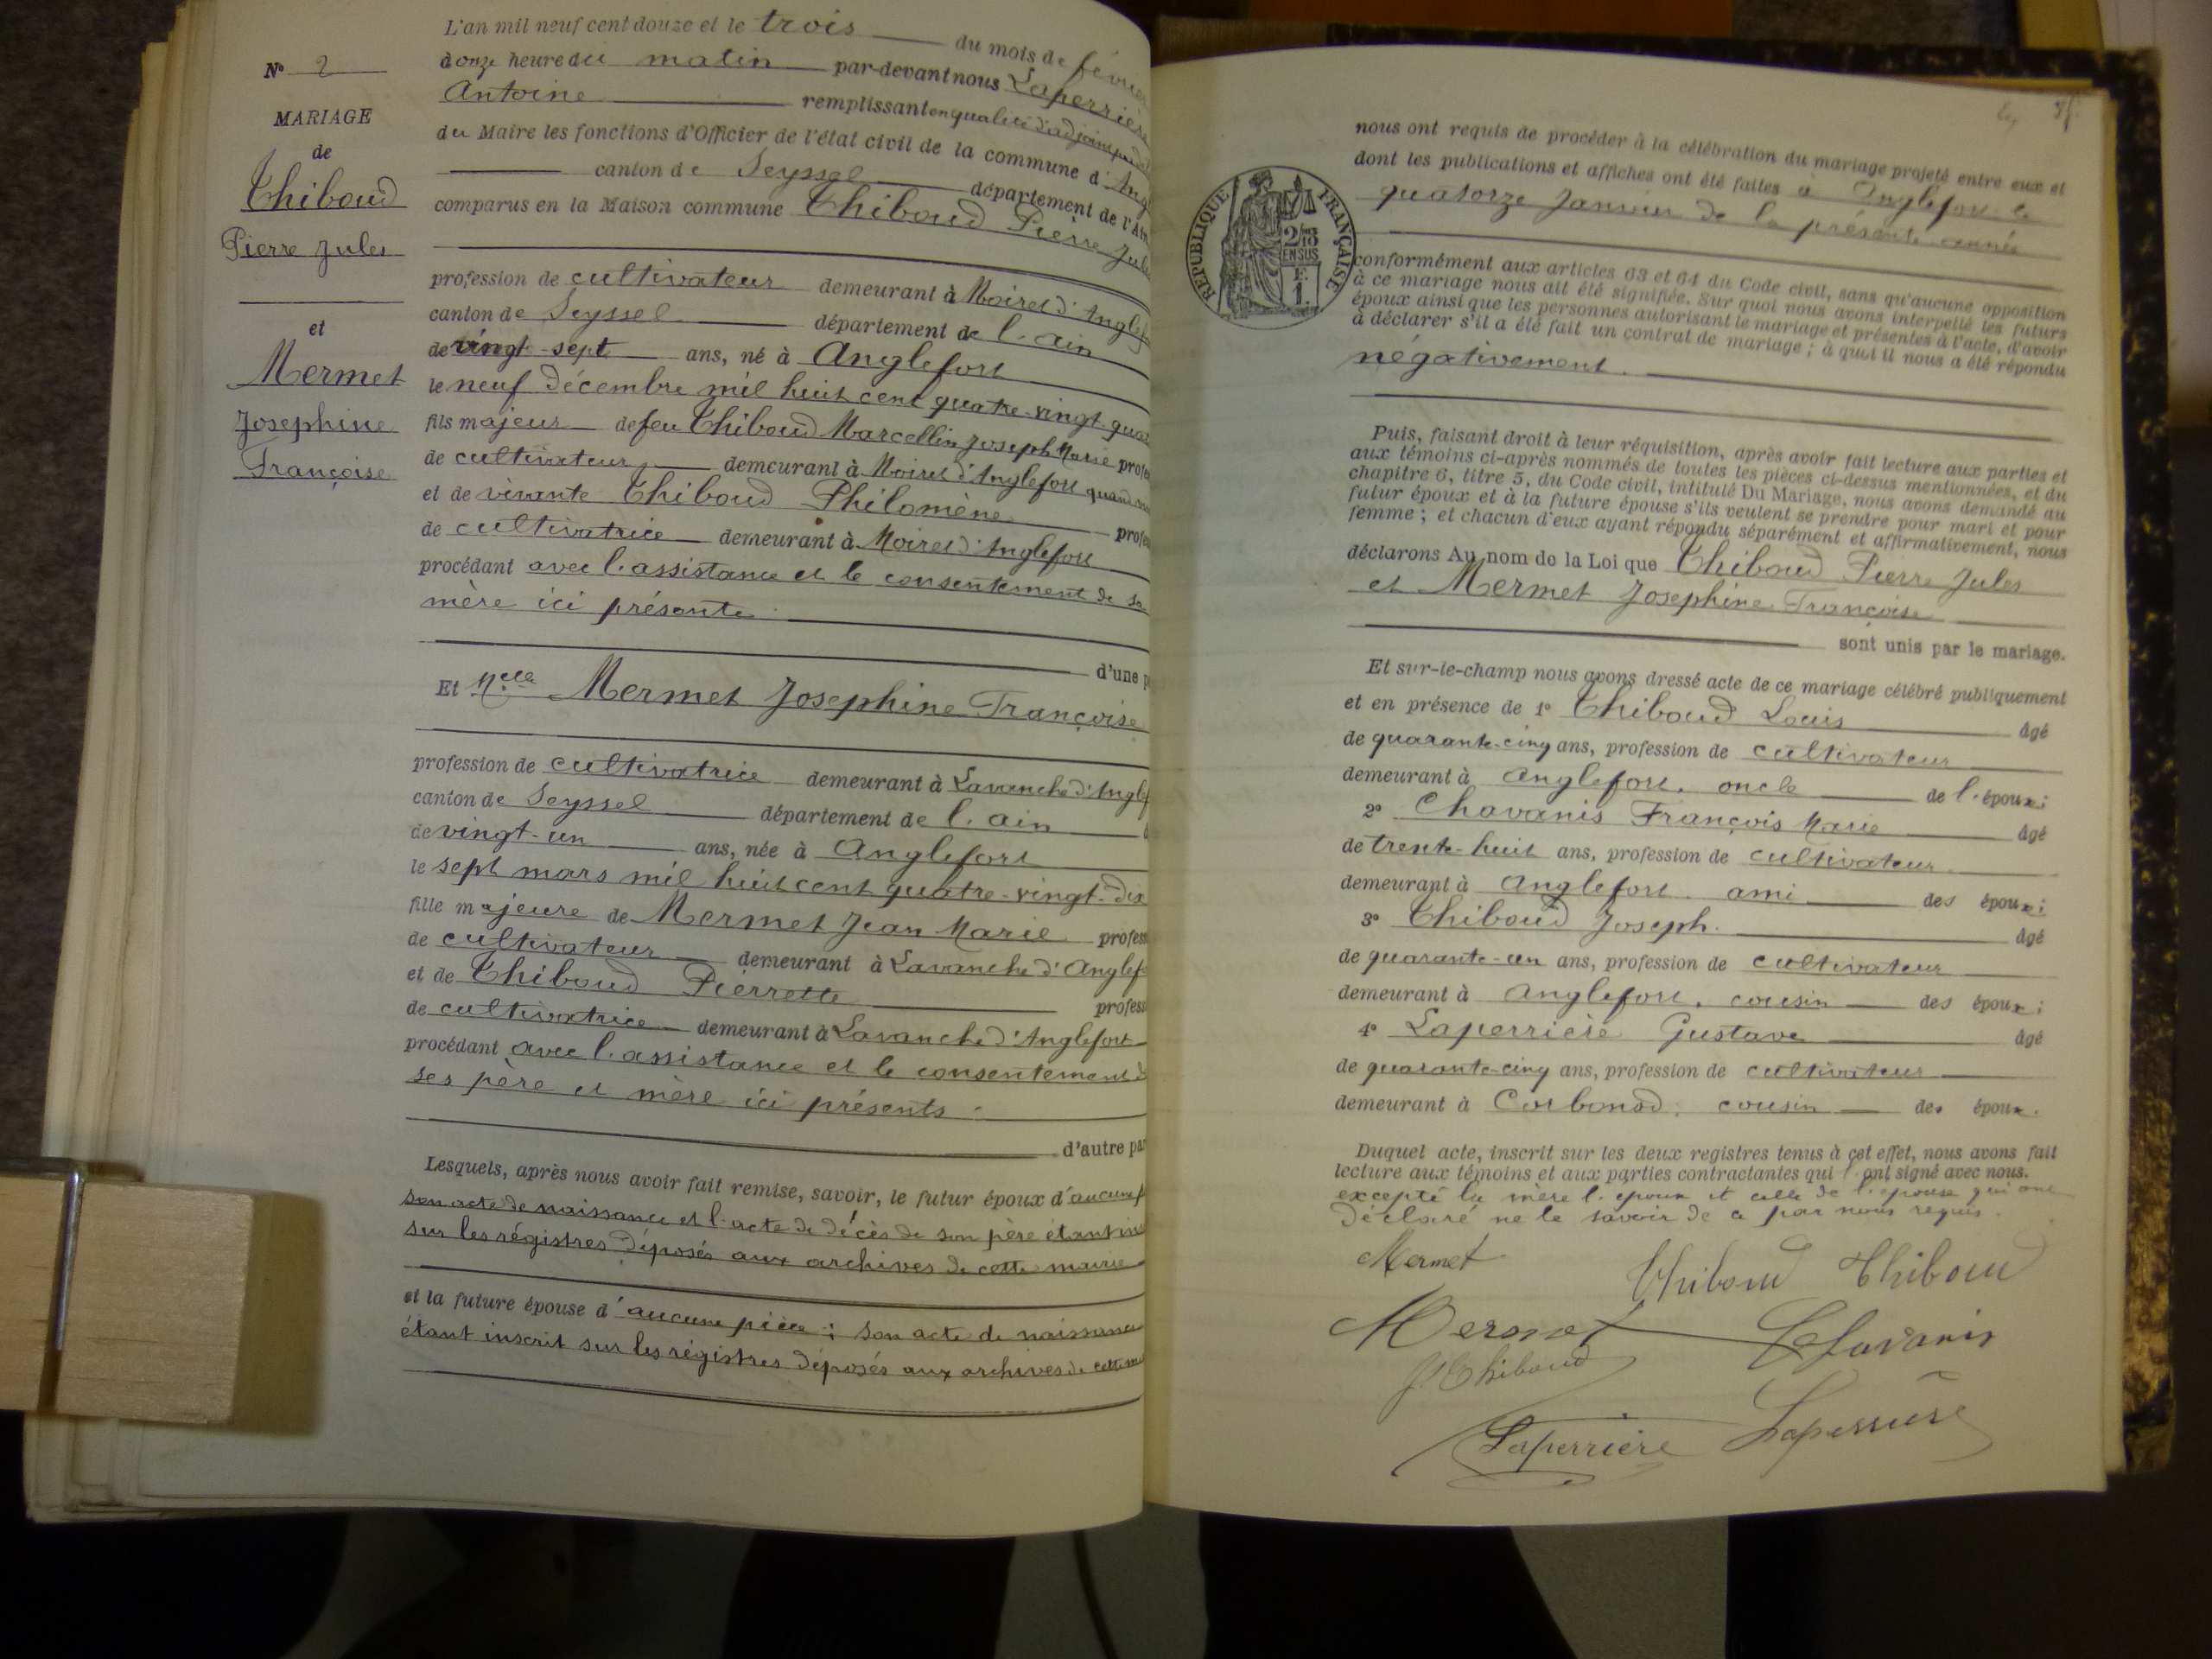 N° 2
MARIAGE
de
Thiboud
Pierre Jules
et
Mermet
Josephine
Françoise
L'an mil neuf cent douze et le trois du mois de février
à onze heure du matin par-devant nous Laperrière
Antoine remplissant en qualité d'adjoint
du Maire les fonctions d'Officier de l'état civil de la commune d'Ang
canton de Seyssel département de l'Ain
comparus en la Maison commune Thiboud Pierre Jules
profession de cultivateur demeurant à Moiret d'Anglef
canton de Seyssel département de l'ain
de vingt-sept ans, né à Anglefort
le neuf décembre mil huit cent quatre-vingt-quat
fils majeur de feu Thiboud Marcellin Joseph Marie profes
de cultivateur demeurant à Moiret d'Anglefort quand
et de vivante Thiboud Philomène profes
de cultivatrice demeurant à Moiret d'Anglefort
procédant avec l'assistance et le consentement de sa
mère ici présente.
d'une p
Et Melle Mermet Josephine Françoise
profession de cultivatrice demeurant à Lavanche d'Anglef
canton de Seyssel département de l'ain
de vingt-un ans, née à Anglefort
le sept mars mil huit cent quatre-vingt-dix
fille majeure de Mermet Jean Marie profess
de cultivateur demeurant à Lavanche d'Anglef
et de Thiboud Pierrette profess
de cultivatrice demeurant à Lavanche d'Anglefort
procédant avec l'assistance et le consentement d
ses père et mère ici présents.
d'autre par
Lesquels, après nous avoir fait remise, savoir, le futur époux d'aucune p
son acte de naissance et l'acte de décès de son père étant ins
sur les régistres déposés aux archives de cette mairie
et la future épouse d'aucune pièce; son acte de naissance
étant inscrit sur les régistres déposés aux archives de cette m
nous ont requis de procéder à la célébration du mariage projeté entre eux et
dont les publications et affiches ont été faites à Anglefort le
quatorze Janvier de la présente année
RÉPUBLIQUE FRANÇAISE
2/10 EN SUS
F.
1.
conformément aux articles 63 et 64 du Code civil, sans qu'aucune opposition
à ce mariage nous ait été signifiée. Sur quoi nous avons interpellé les futurs
époux ainsi que les personnes autorisant le mariage et présentes à l'acte, d'avoir
à déclarer s'il a été fait un contrat de mariage; à quoi il nous a été répondu
négativement.
Puis, faisant droit à leur réquisition, après avoir fait lecture aux parties et
aux témoins ci-après nommés de toutes les pièces ci-dessus mentionnées, et du
chapitre 6, titre 5, du Code civil, intitulé Du Mariage, nous avons demandé au
futur époux et à la future épouse s'ils veulent se prendre pour mari et pour
femme; et chacun d'eux ayant répondu séparément et affirmativement, nous
déclarons Au nom de la Loi que Thiboud Pierre Jules
et Mermet Josephine Françoise
sont unis par le mariage.
Et sur-le-champ nous avons dressé acte de ce mariage célébré publiquement
et en présence de 1° Thiboud Louis âgé
de quarante-cinq ans, profession de cultivateur
demeurant à Anglefort, oncle de l'époux;
2° Chavanis François Marie âgé
de trente-huit ans, profession de cultivateur
demeurant à Anglefort. ami des époux;
3° Thiboud Joseph. âgé
de quarante-un ans, profession de cultivateur
demeurant à Anglefort, cousin des époux;
4° Laperrière Gustave âgé
de quarante-cinq ans, profession de cultivateur
demeurant à Corbonod, cousin des époux.
Duquel acte, inscrit sur les deux registres tenus à cet effet, nous avons fait
lecture aux témoins et aux parties contractantes qui l'ont signé avec nous.
excepté la mère l'époux et celle de l'épouse qui ont
déclaré ne le savoir de ce par nous requis.
Mermet Thiboud Thiboud
Mermet Chavanis
J Thiboud
Laperrière Laperrière